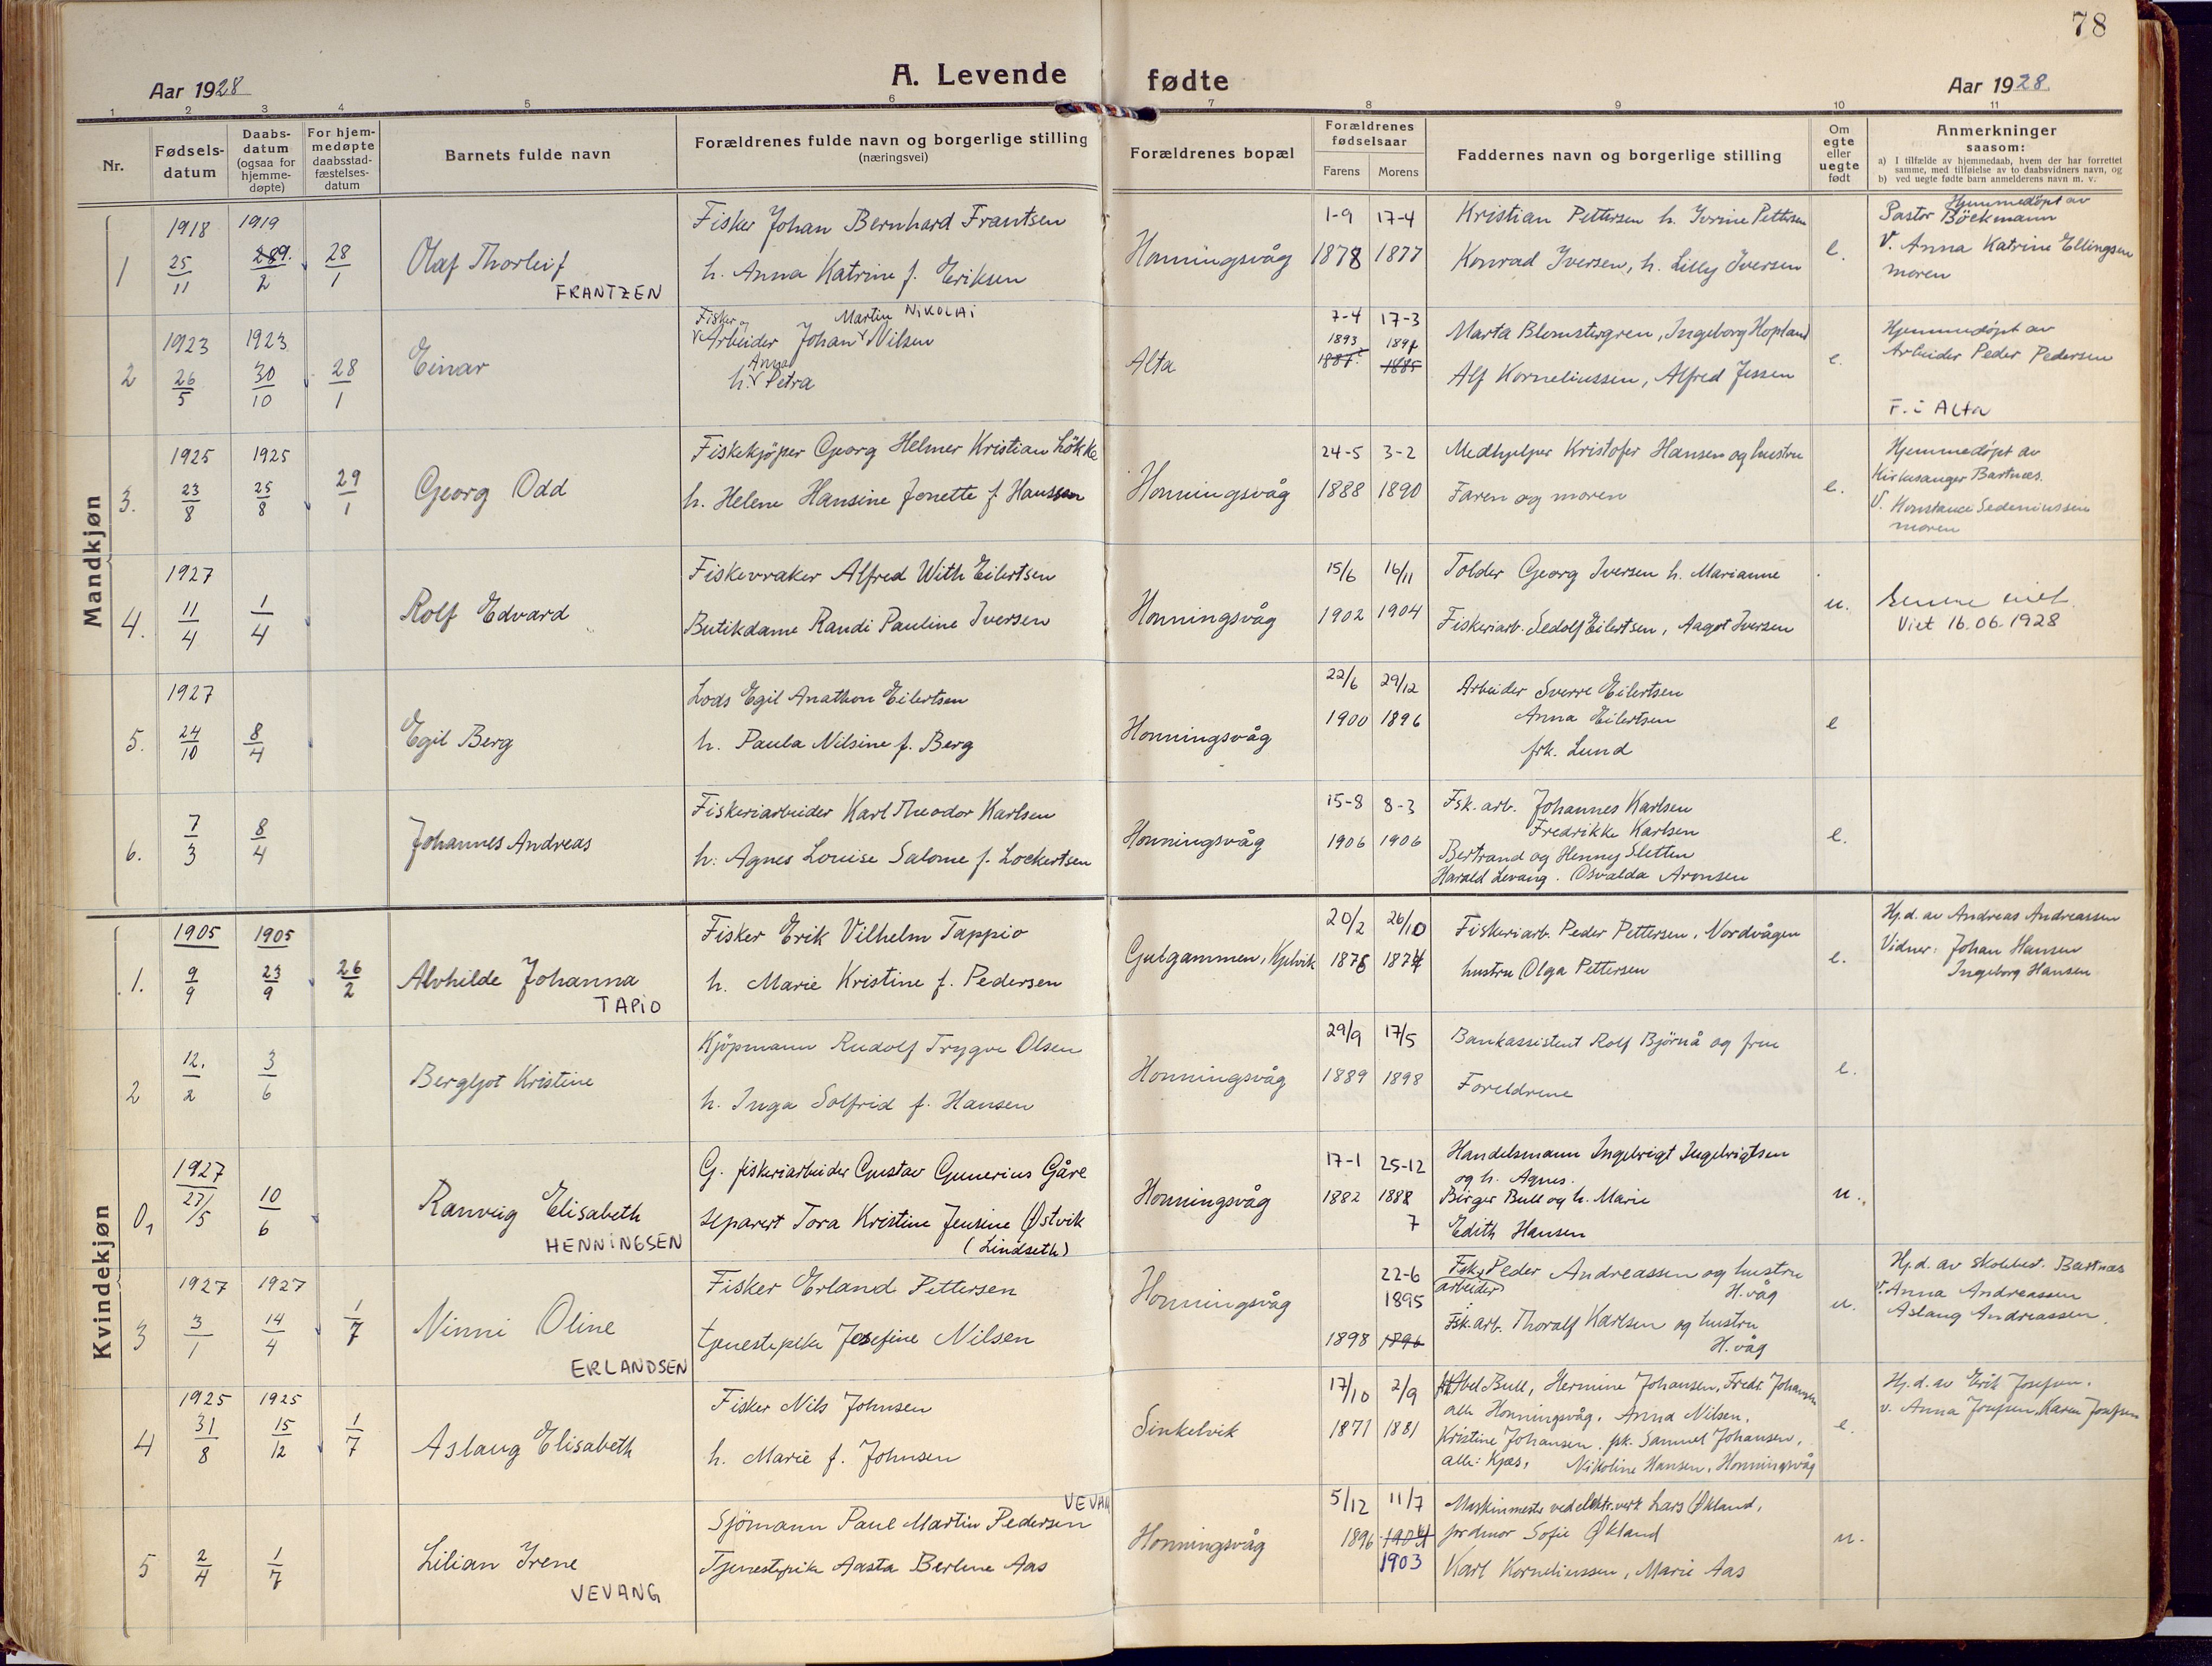 78
A. Levende fødte
Aar 1928
Aar 1928.
1 2 3 4 5 6 7 8 9 10 11
Nr.
Fødsels-
datum
Daabs-
datum
(ogsaa for
hjemme-
døpte)
For hjem-
medøpte
daabsstad-
fæstelses-
datum
Barnets fulde navn
Forældrenes fulde navn og borgerlige stilling
(næringsvei)
Forældrenes bopæl
Forældrenes
fødselsaar
Farens Morens
Faddernes navn og borgerlige stilling
Om
egte
eller
uegte
født
Anmerkninger
saasom:
a) I tilfælde av hjemmedaab, hvem der har forrettet
samme, med tilføielse av to daabsvidners navn, og
b) ved uegte fødte barn anmelderens navn m. v.
Mandkjøn
1
1918 25/11
1919 289. 2
28/1
Olaf Thorleif
FRANTZEN
Fisker Johan Bernhard Frantsen
h. Anna Katrine f. Eriksen
Honningsvåg
1-9 1878
17-4 1877
Kristian Pettersen h. Iverine Pettersen
Konrad Iversen, h. Lilly Iversen
e.
Hjemmedøpt av
Pastor Böckmann
V. Anna Katrine Ellingsen
moren
2
1923 26/5
1923 30/10
28/1
Einar
Fisker og Martin NIKOLAI
Arbeider Johan Nilsen
Anna
h. Petra
Alta
7-4 1893 1887
17-3 1891 1885
Marta Blomstergren, Ingeborg Hopland
Alf Korneliussen, Alfred Jessen
e.
Hjemmedøpt av
Arbeider Peder Pedersen
F. i Alta
3.
1925 23/8
1925 25/8
29/1
Georg Odd
Fiskekjöper Georg Helmer Kristian Lökke
h. Helene Hansine Jonette f Hanssen
Honningsvåg
24-5 1888
3-2 1890
Medhjelper Kristofer Hansen og hustru
Faren og moren
e.
Hjemmedøpt av
Kirkesanger Bartnæs.
V. Konstance Sedeniussen
moren
4.
1927 11/4
1/4
Rolf Edvard
Fiskevraker Alfred With Eilertsen
Butikdame Randi Pauline Iversen
Honningsvåg
15/6 1902
16/11 1904
Tolder Georg Iversen h. Marianne
Fiskeriarb. Sedolf Eilertsen, Aagot Iversen
u.
Senere viet
Viet 16.06.1928
5.
1927 24/10
8/4
Egil Berg
Lods Egil Anathon Eilertsen
h. Paula Nilsine f. Berg
Honningsvåg
22/6 1900
29/12 1896
Arbeider Sverre Eilertsen
Anna Eilertsen
frk. Lund
e
6.
7/3
8/4
Johannes Andreas
Fiskeriarbeider Karl Theodor Karlsen
h: Agnes Louise Salome f. Lockertsen
Honningsvåg
15-8 1906
8-3 1906
Fsk. arb. Johannes Karlsen
Fredrikke Karlsen
Bertrand og Henny Sletten
Harald Levang. Osvalda Aronsen
e.
Kvindekjøn
1.
1905 9/9
1905 23/9
26/2
Alvhilde Johanna
TAPIO
Fisker Erik Vilhelm Tappio
h. Marie Kristine f. Pedersen
Gulgammen, Kjelvik
20/2 1876
26/10 1874
Fiskeriarb. Peder Pettersen, Nordvågen
hustru Olga Pettersen
e.
Hj.d. av Andreas Andreassen
Vidner: Johan Hansen
Ingeborg Hansen
2
12./2
3/6
Bergljot Kristine
Kjöpmann Rudolf Trygve Olsen
h. Inga Solfrid f. Hansen
Honningsvåg
29/9 1889
17/5 1898
Bankassistent Rolf Björnå og frue
Foreldrene
e.
0,
1927 27/5
10/6
Ranveig Elisabeth
HENNINGSEN
G. fiskeriarbeider Gustav Gunerius Gåre
separert Tora Kristine Jensine Østvik
(Lindseth)
Honningsvåg
17-1 1882
25-12 1888
7
Handelsmann Ingebrigt Ingebrigtsen
og h. Agnes.
Birger Bull og h. Marie
Edith Hansen
u.
3
1927 3/1
1927 14/4
1/7
Ninni Oline
ERLANDSEN
Fisker Erland Pettersen
tjenestepike Josefine Nilsen
Honningsvåg
1898
22-6 1895 1896
Fsk. Peder Andreassen og hustru
arbeider H.våg
Fsk. arb. Thoralf Karlsen og hustru
H. våg
u.
Hj.d. av skolebest. Bartnæs
V. Anna Andreassen
Aslaug Andreassen.
4
1925 31/8
1925 15/12
1/7
Aslaug Elisabeth
Fisker Nils Johnsen
h. Marie f. Johnsen
Sinkelvik
17/10 1871
2/9 1881
Abel Bull, Hermine Johansen, Fredr. Johansen
alle Honningsvåg. Anna Nilsen,
Kristine Johansen, frk. Samuel Johansen,
alle: Kjæs, Nikoline Hansen, Honningsvåg
e.
Hj.d. av Erik Josefsen.
v. Anna Josefsen, Karen Josefsen
5
2/4
1/7
Lilian Irene
VEVANG
VEVANG
Sjömann Paul Martin Pedersen
Tjenestepike Aasta Berline Aas
Honningsvåg
5/12 1896
11/7 1904 1903
Maskinmester ved elektr.verk Lars Økland,
jordmor Sofie Økland
Karl Korneliussen, Marie Aas
u.